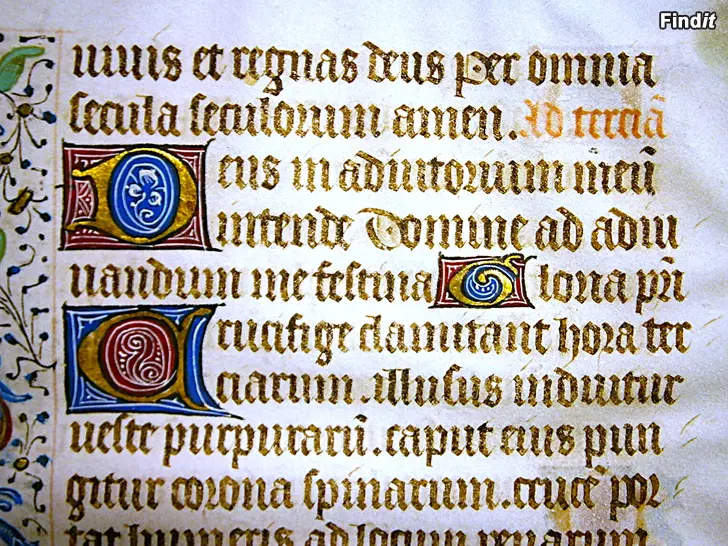 Findit
uiuis et regnas deus Per omnia
secula seculorum amen. Ad terciā
Deus in adiutorium meū
intende Domine ad adiu
uandum me festina Gloria pr̄i
Crucifige clamitant hora ter
ciarum .illusus induitur
ueste purpurarū .caput eius pun
gitur corona spinarum .cruce᷑ por
tat humeris ad locum penarum